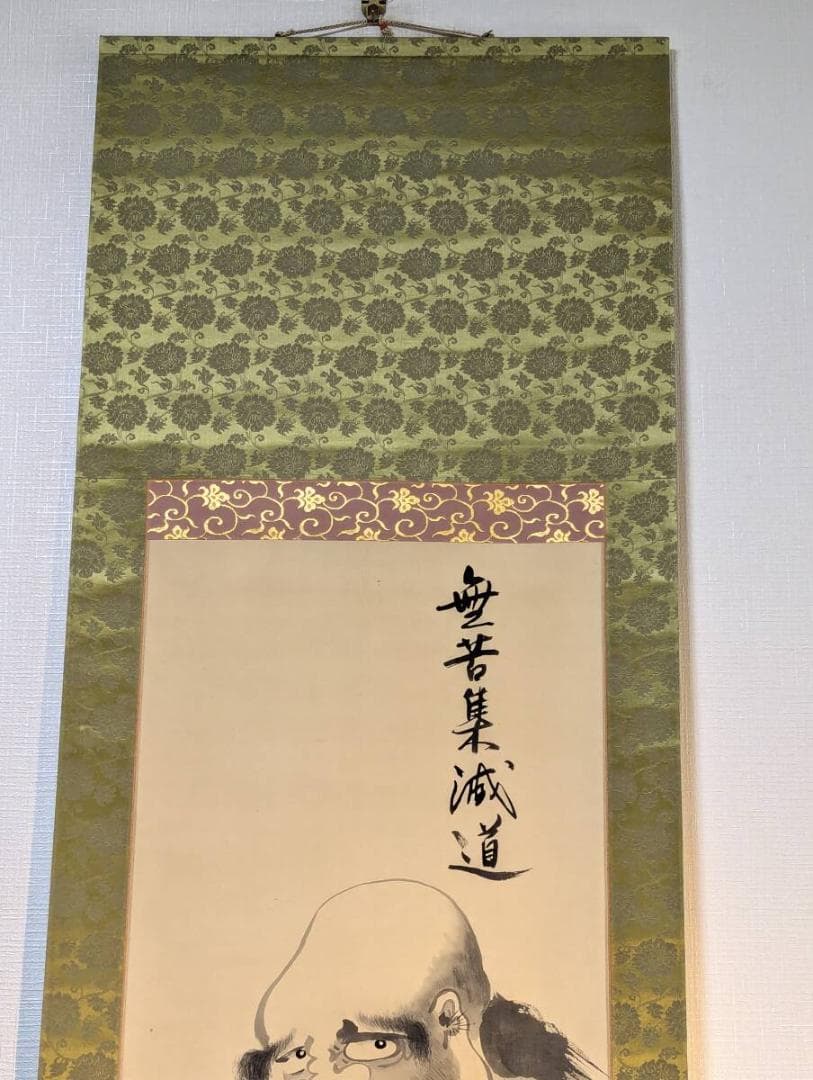 無苦集滅道